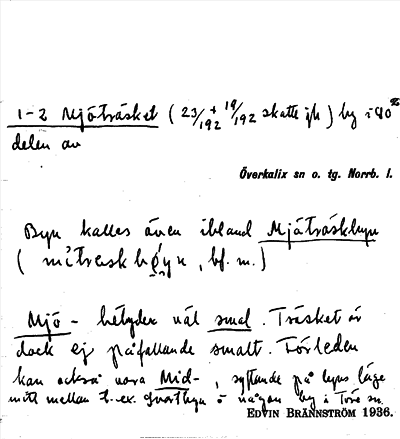 1-2 Mjöträsket (23/192 + 19/192 skattejh) by i NO
delen av
Överkalix sn o. tg. Norrb. l.
Byn kallas även ibland Mjöträskbyn
( bf. m.)
Mjö - betyder väl smal. Träsket är
dock ej påfallande smalt. Förleden
kan också vara Mid-, syftande på byns läge
mitt mellan t.ex. Svartbyn o någon by i Töre sn.
EDVIN BRÄNNSTRÖM 1936.